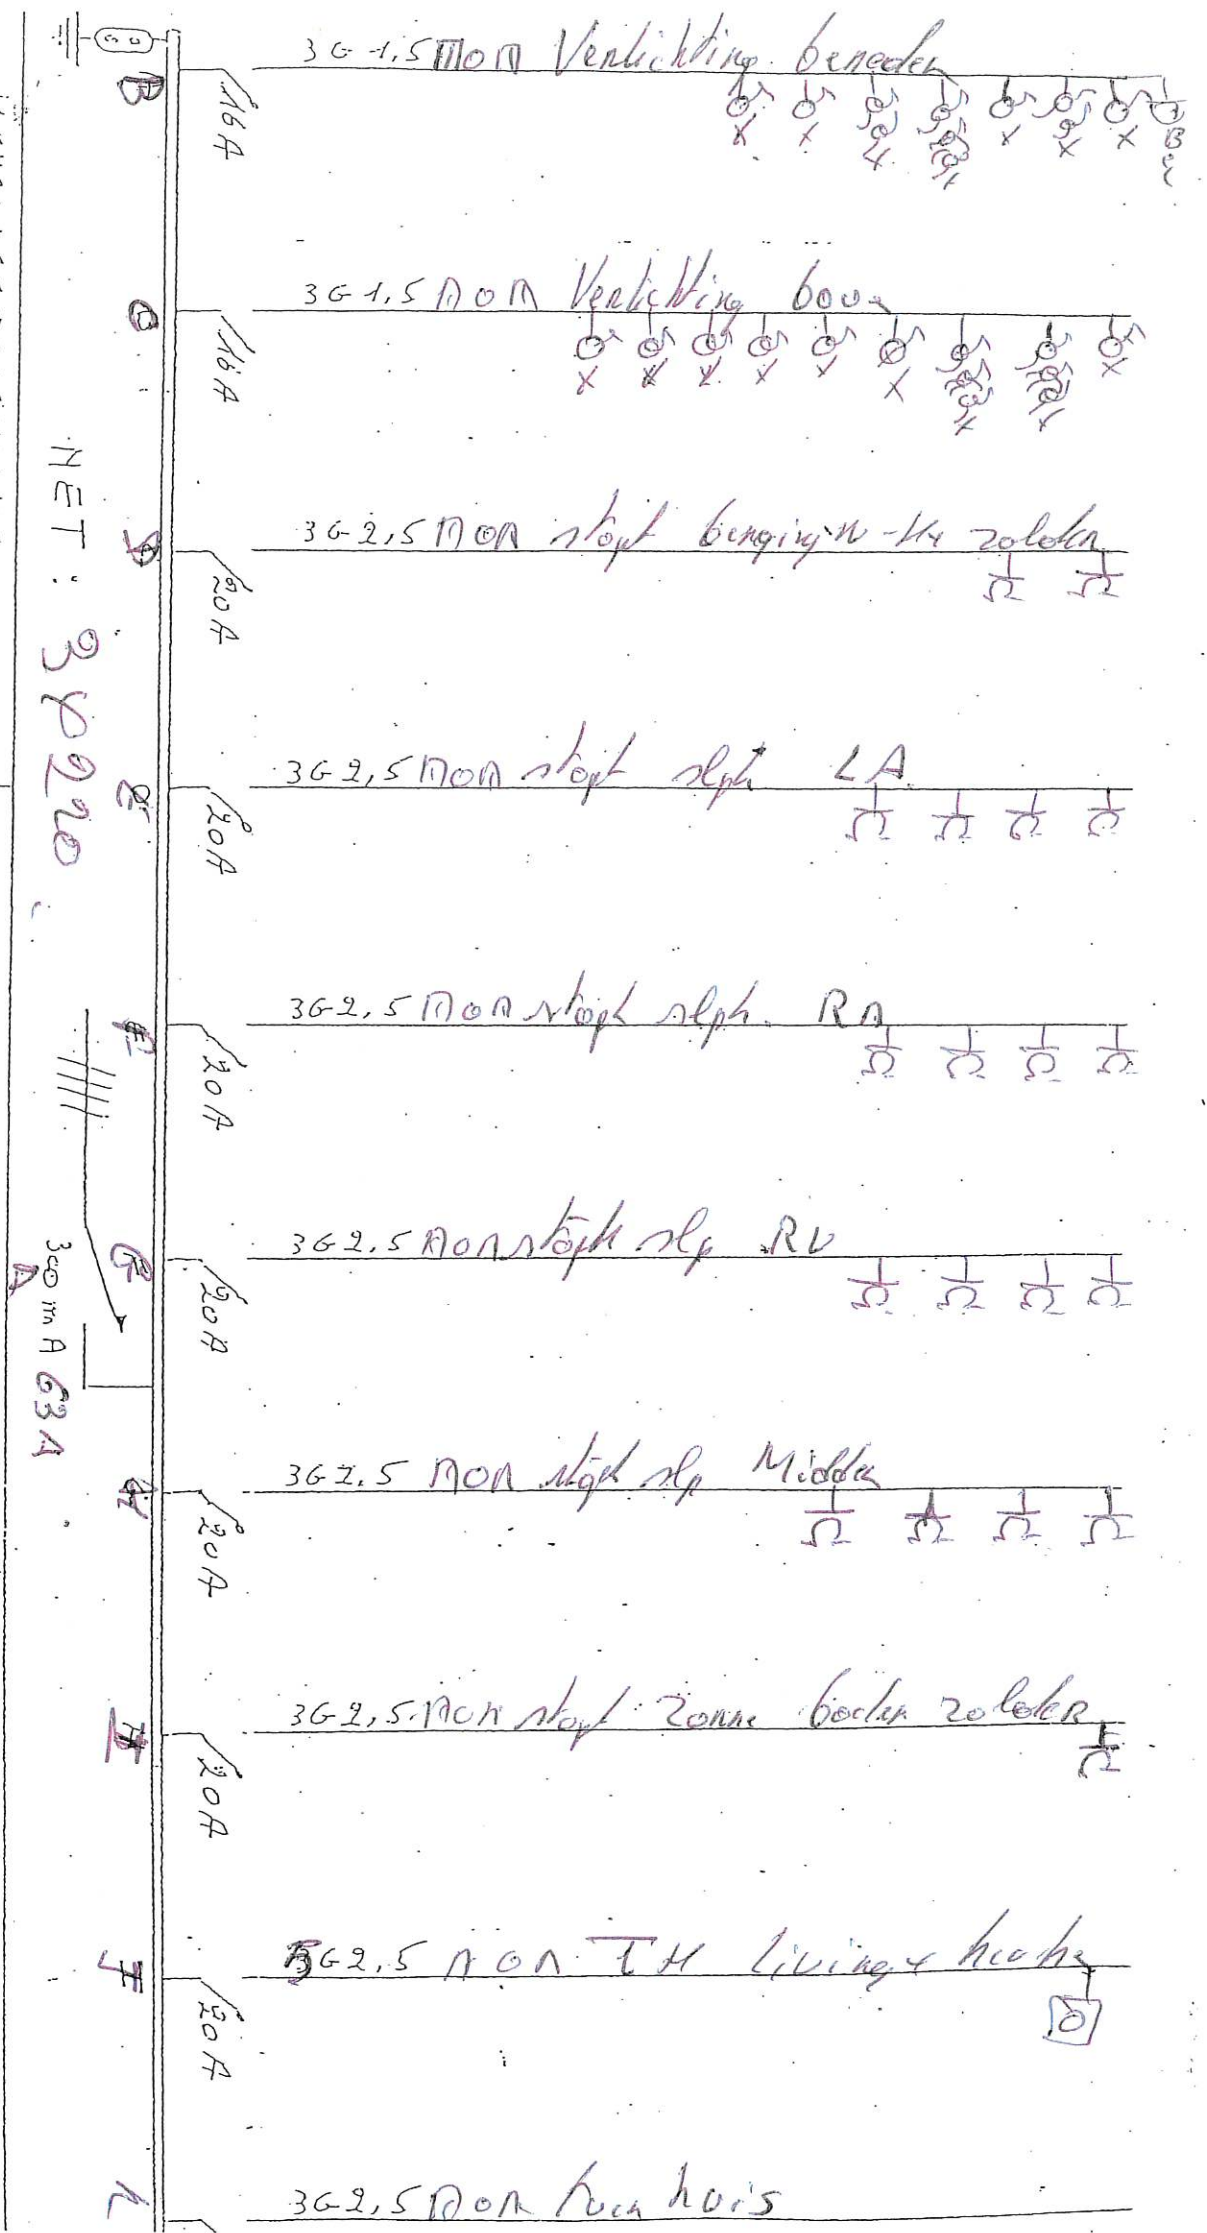 3G 1,5 MON Verlichting beneden
B
16A
Bel
3G 1,5 MON Verlichting boven
C
16A
3G 2,5 MON stopk zolder
D
20A
3G 2,5 MON stopk slpk LA
E
20A
3G 2,5 MON stopk slpk. RA
F
20A
3G 2,5 MON stopk slp RV
G
20A
3G 2.5 MON stopk slp Midden
H
20A
3G 2,5 MON stopk zonne zolder
I
20A
3G 2,5 MON TH living + keuken
J
20A
3G 2,5 MON tuin huis
K
NET : 3 x 220
300 mA 63A
A